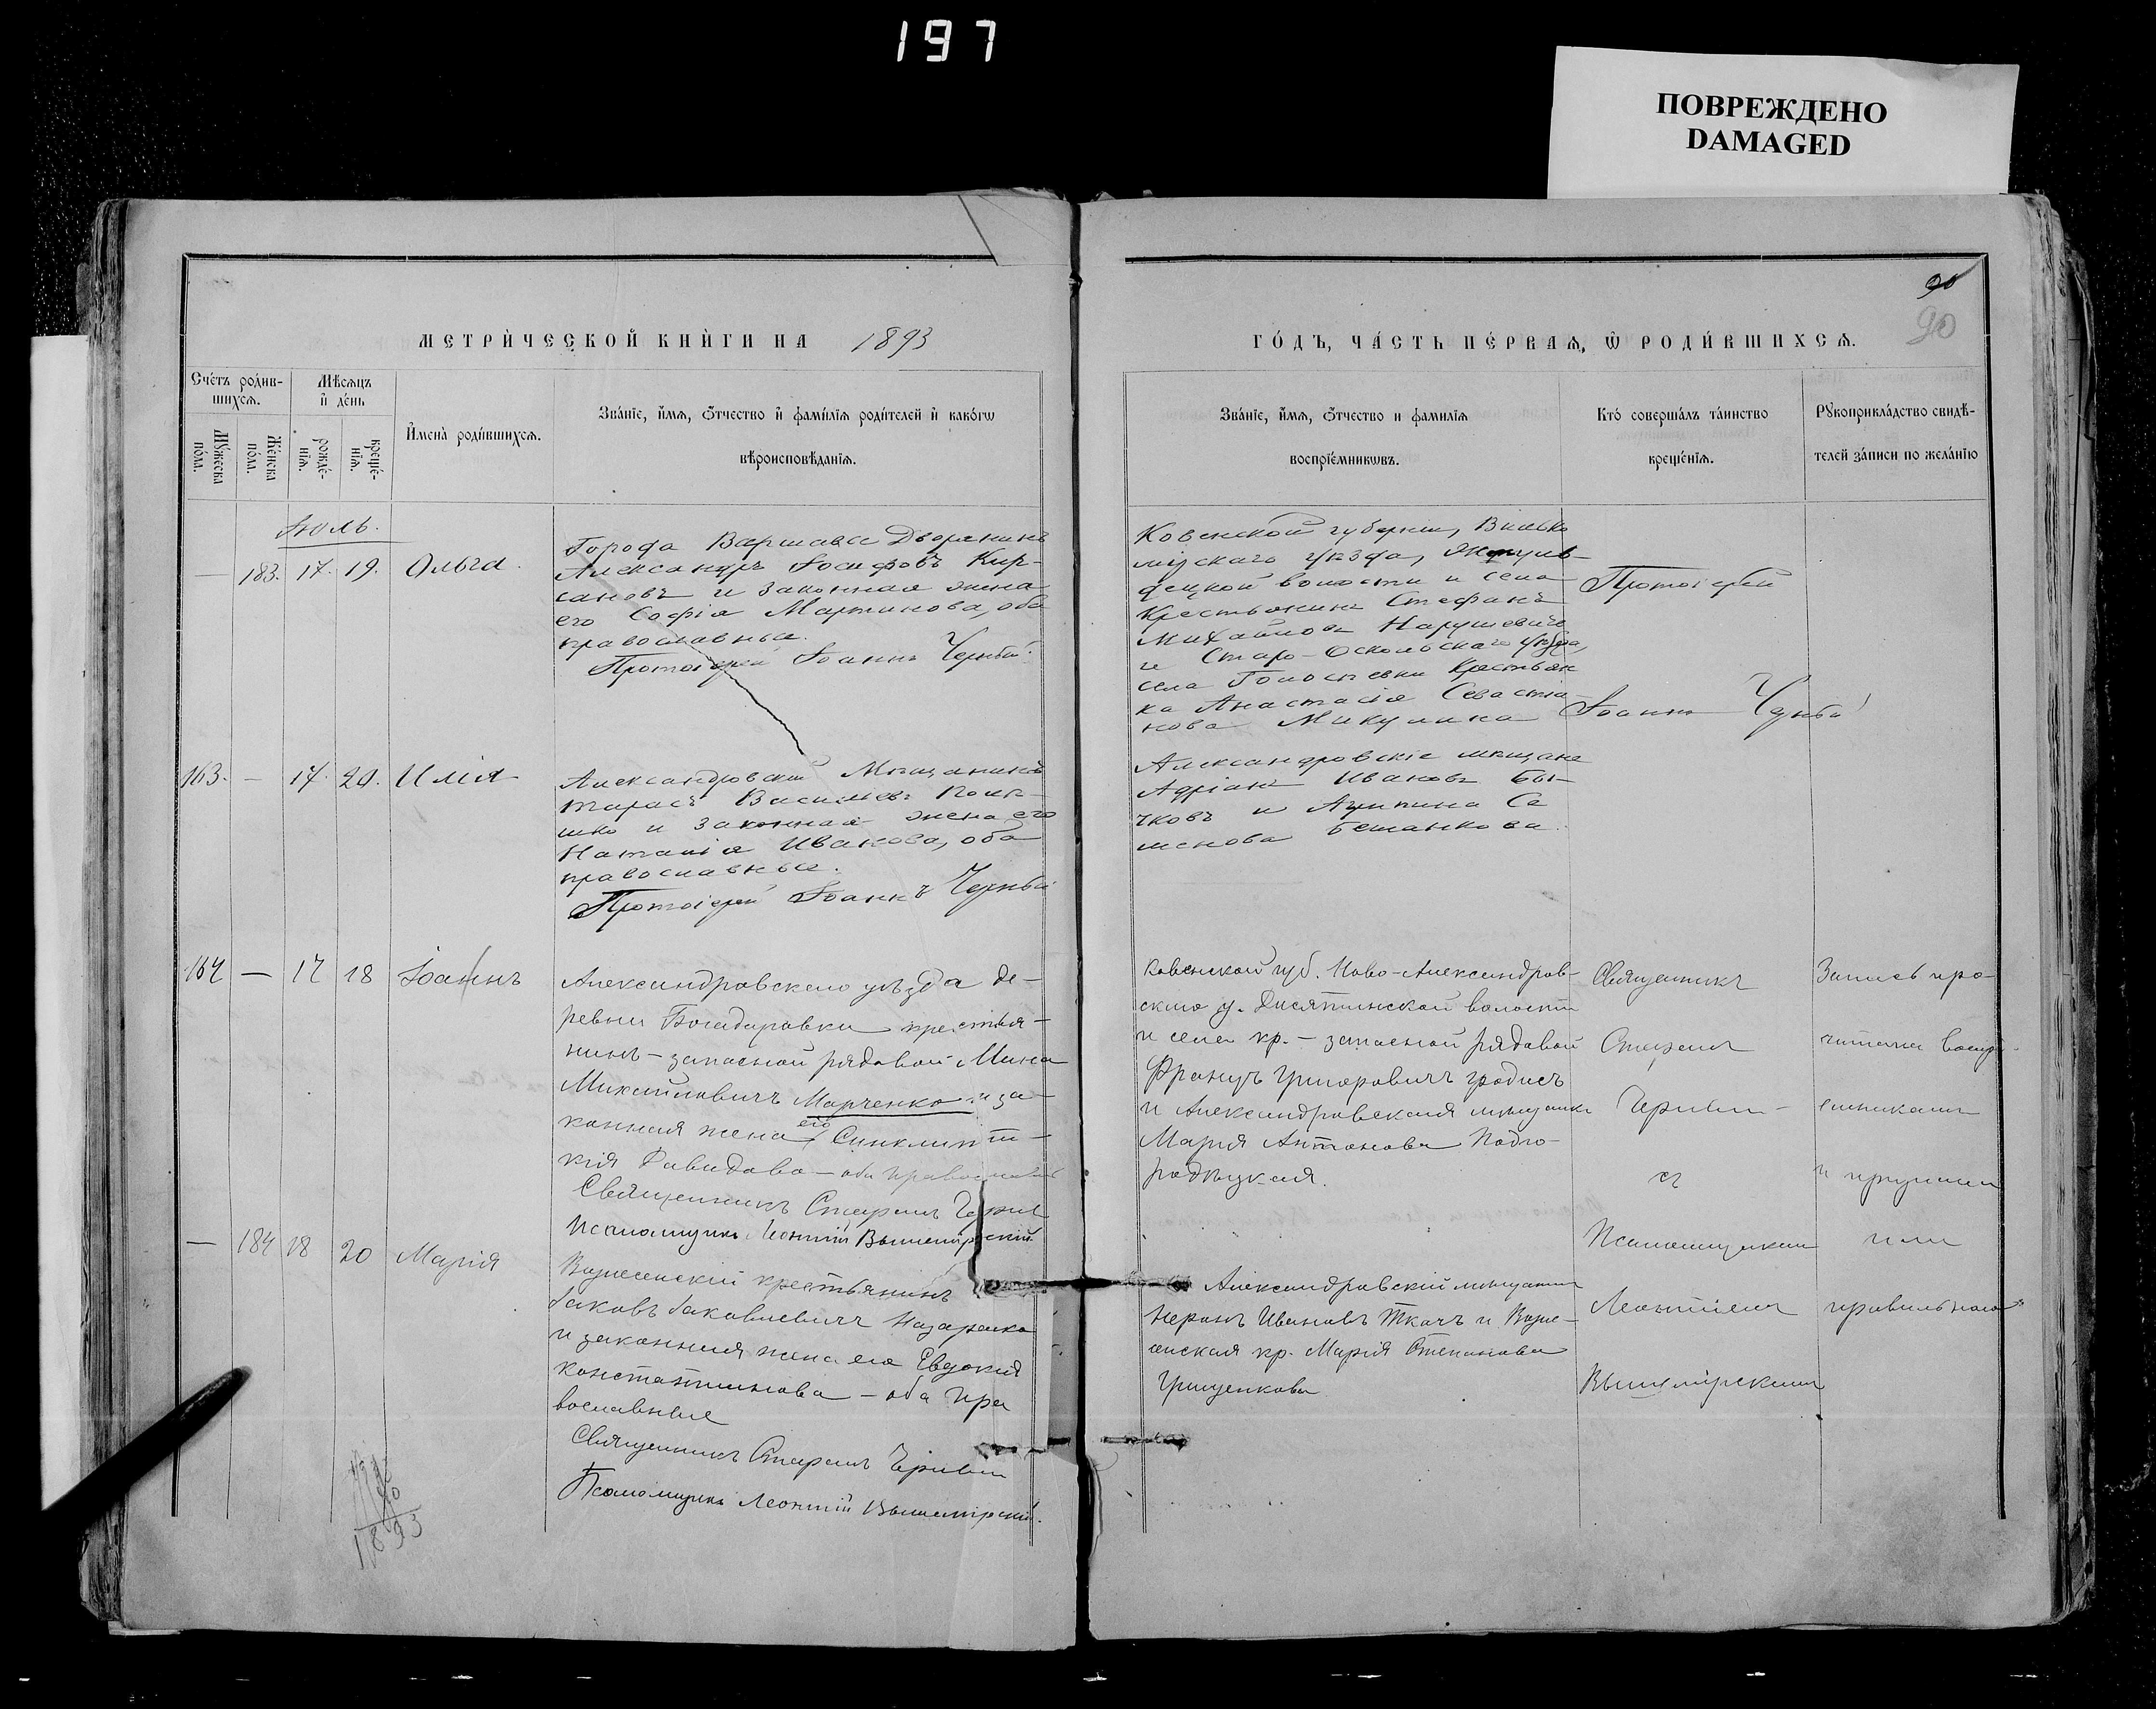 197
ПОВРЕЖДЕНО
DAMAGED
90
90
МЕТРИЧЕСКОЙ КНИГИ НА 1893
ГОДЪ, ЧАСТЬ ПЕРВАЯ, Ѡ РОДИВШИХСЯ.
Счетъ родив-
шихся.
Мужеска пола.
Женска пола.
Мѣсяцъ и день
рожде-
нія.
креще-
нія.
Имена родившихся.
Званіе, имя, отчество и фамилія родителей и какогѡ
вѣроисповѣданія.
Званіе, имя, отчество и фамилія
воспріемникѡвъ.
Кто совершалъ таинство
крещенія.
Рукоприкладство свидѣ-
телей записи по желанію
Іюль.
— 183. 17. 19. Ольга.
Города Варшавы Дворянинъ
Александръ Іосифовъ Кир-
сановъ и законная жена
его Софія Мартинова, оба
православные.
Протоіерей Іоаннъ Черный
Ковенской губерніи, Вилько
мірскаго уѣзда,
волости и села
Крестьянинъ Стефанъ
Михайловъ Нарушевичъ
и Старо-Оскольскаго уѣзда,
села Крестьян
ка Анастасія Севастіа-
нова Микулина
Протоіерей
Іоаннъ Черный
163. — 17. 20. Илія
Александровскій Мѣщанинъ
Тарасъ Васильевъ
и законная жена его
Наталія Иванова, оба
православные.
Протоіерей Іоаннъ Черный
Александровскіе мѣщане
Адріанъ Ивановъ Бы-
чковъ и Агрипина Се
менова
164 — 17 18 Іоаннъ
Александровскаго уѣзда де-
ревни Богодаровки крестья-
нинъ - запасной рядовой Мина
Михайловичъ Марченко и за-
конная жена его Синклити-
кія Давидова - оба православные
Священникъ Стефанъ
Псаломщикъ Леонтій Вышемірскій
Ковенской губ. Ново-Александров-
скаго у. волости
и села кр. - запасной рядовой
Францъ Григоровичъ
и Александровская мѣщанка
Марія Антонова Подго-
родецкая.
Священникъ
Стефанъ
съ
Псаломщикомъ
Леонтіемъ
Вышемірскимъ
Запись про-
читана воспрі-
емниками
и
или
правильною
— 184 18 20 Марія
Вознесенскій крестьянинъ
Іаковъ Іаковлевичъ Назаренко
и законная жена его Евдокія
Константинова - оба пра
вославные
Священникъ Стефанъ
Псаломщикъ Леонтій Вышемірскій.
Александровскій мѣщанинъ
Неронъ Ивановъ Ткачъ и Возне-
сенская кр. Марія Степанова
Грищенкова
1893